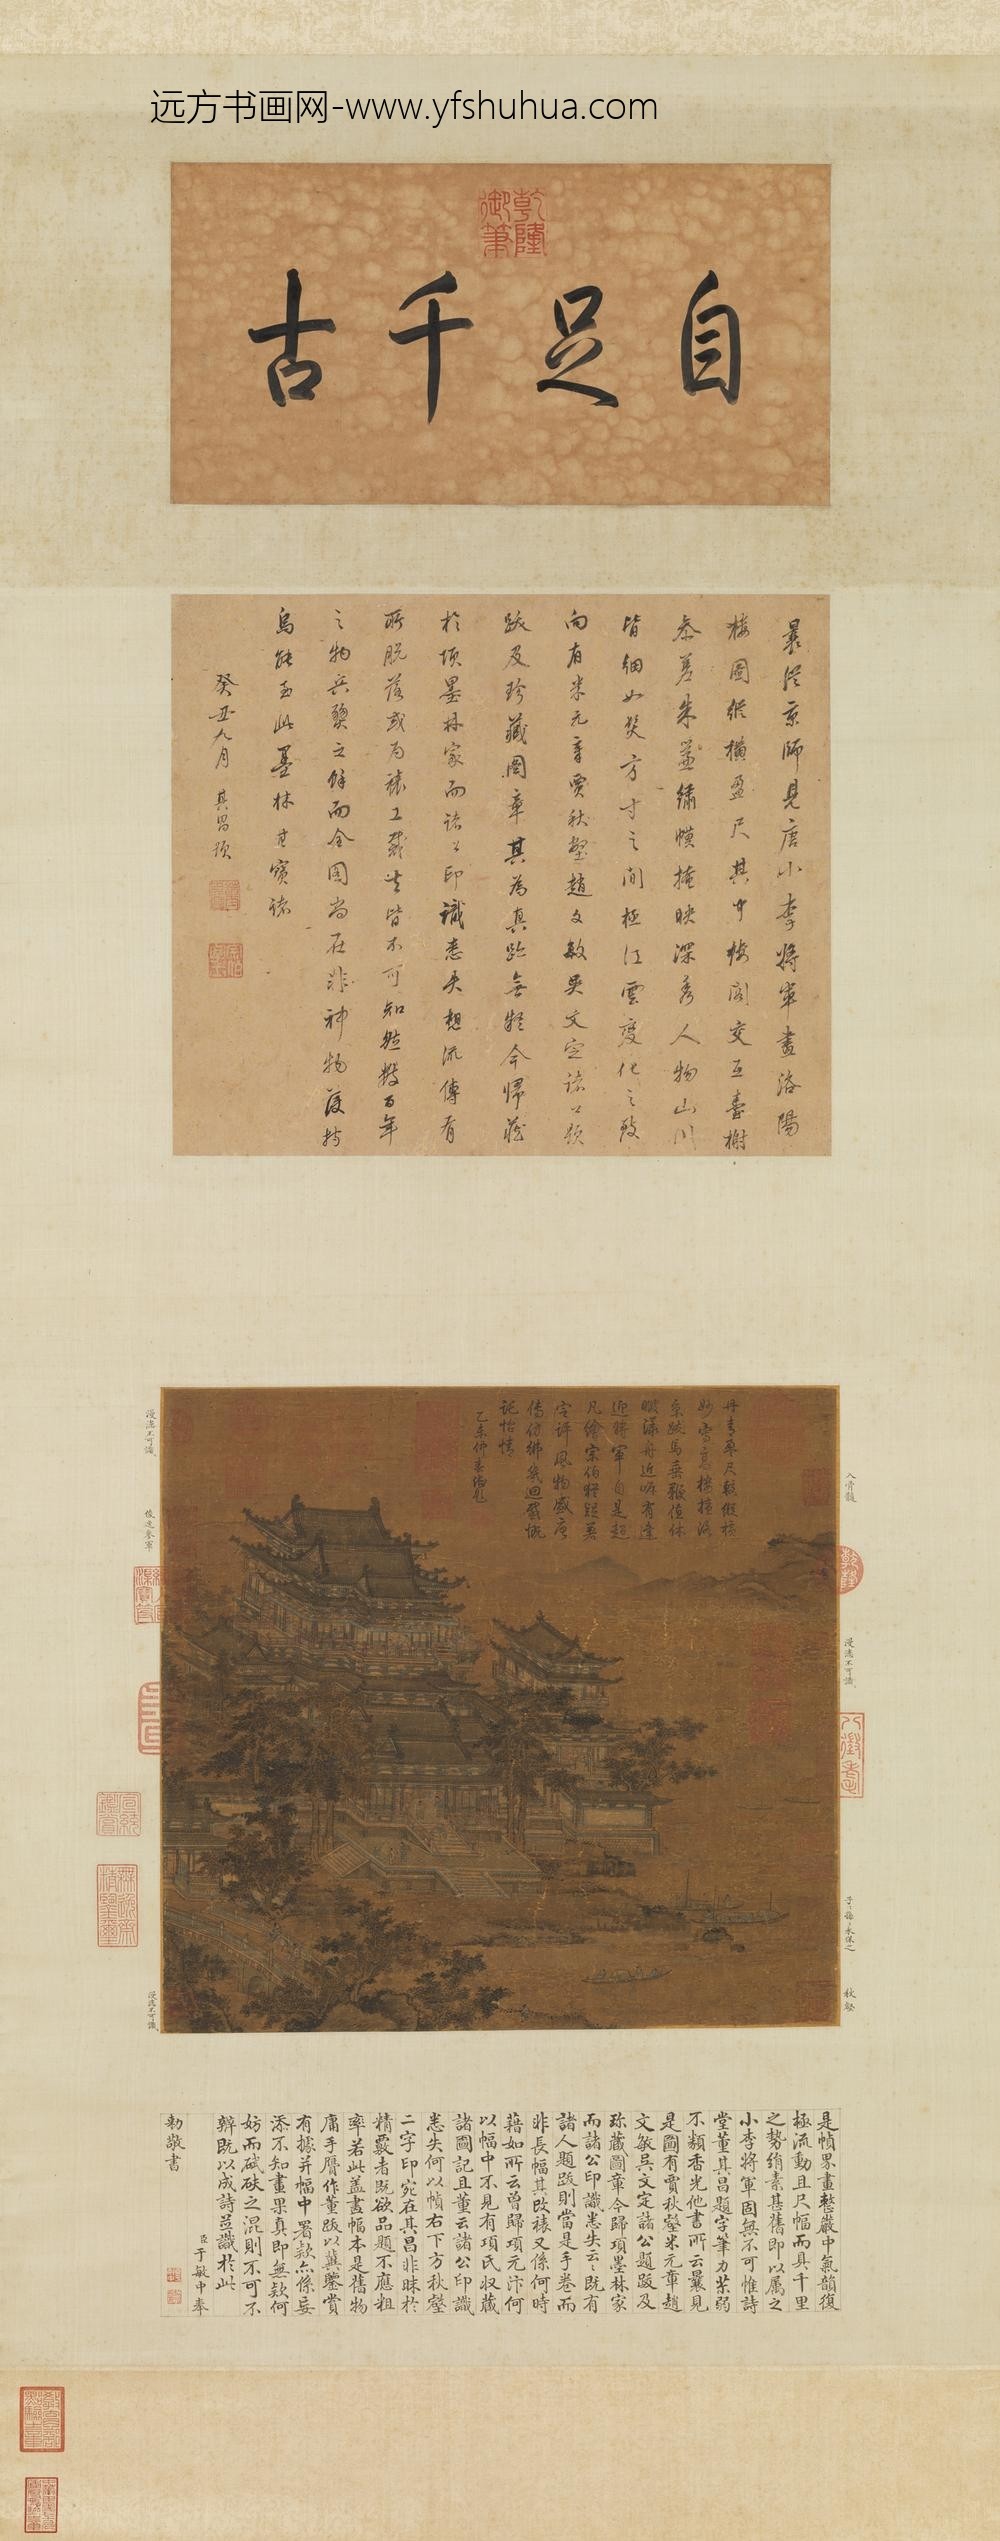 远方书画网-www.yfshuhua.com
乾隆
御筆
自足千古
曩從京師見唐小李將軍畫洛陽
樓圖縱橫盈尺其中樓閣交互臺榭
參差朱簾繡幙掩映深秀人物山川
皆細如髮方寸之間極江雲變化之致
向有米元章賈秋壑趙文敏吳文定諸公題
跋及珍藏圖章其為真跡無疑今歸藏
於項墨林家而諸公印識悉失想流傳有
所脫落或為裱工裁去皆不可知然數百年
之物兵燹之餘而全圖尚在非神物護持
烏能至此墨林其寶諸
癸丑九月 其昌題
丹青單尺
妙寫意樓
京跋馬垂鞭值休
暇漾舟近岸有逢
迎將軍自是超
凡繪宗伯
定評風物盛唐
傳仿彿幾迴慨
記怡情
乙未仲春御題
漫漶不可識
入骨髓
乾隆
漫漶不可識
八徵耄
子孫永保之
秋壑
漫漶不可識
是幀界畫整嚴中氣韻復
極流動且尺幅而具千里
之勢絹素甚舊即以屬之
小李將軍固無不可惟詩
堂董其昌題字筆力荼弱
不類香光他書所云曩見
是圖有賈秋壑米元章趙
文敏吳文定諸公題跋及
珎藏圖章今歸項墨林家
而諸公印識悉失云云既有
諸人題跋則當是手卷而
非長幅其改裱又係何時
藉如所云曾歸項元汴何
以幅中不見有項氏收藏
諸圖記且董云諸公印識
悉失何以幀右下方秋壑
二字印宛在其昌非昧於
精覈者既欲品題不應粗
率若此盖畫幅本是舊物
庸手贗作董跋以冀鑒賞
有據并幅中署款亦係妄
添不知畫果真即無款何
妨而碔砆之混則不可不
辨既以成詩並識於此
臣于敏中奉
勅敬書